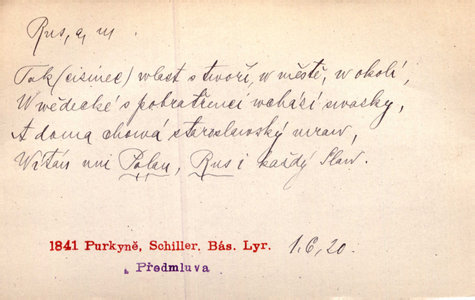 Rus, a, m
Tak (cisinec) wlast stwoří, w městě, w okolí,
W wědecké s pobratřenci wchází swazky,
A doma chowá staroslawský mraw,
Witán mi Polan, Rus i každý Slaw.
1841 Purkyně, Schiller. Bás. Lyr. 1.6, 20.
Předmluva